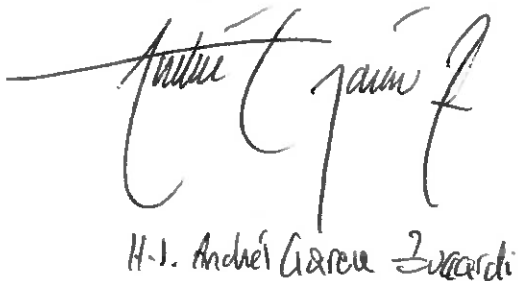 André García Z
H.S. Andrés García Zuccardi